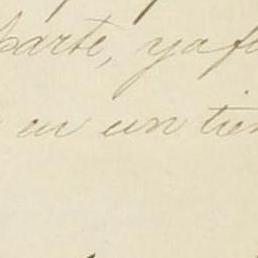 parte, ya f
en un tien